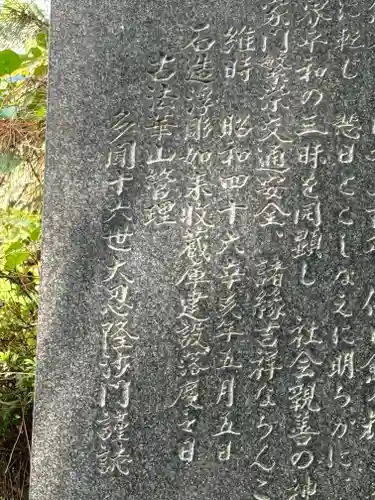 に転じ 悲日とこしなえに明らかに
家平和の三昧を同顕し 社会親善の神
家門繁栄交通安全、諸縁吉祥ならんこ
維時 昭和四十六辛亥年五月五日
石造浮彫如来収蔵庫建設落慶之日
古法華山管理
多聞十六世大忍隆莎門謹誌